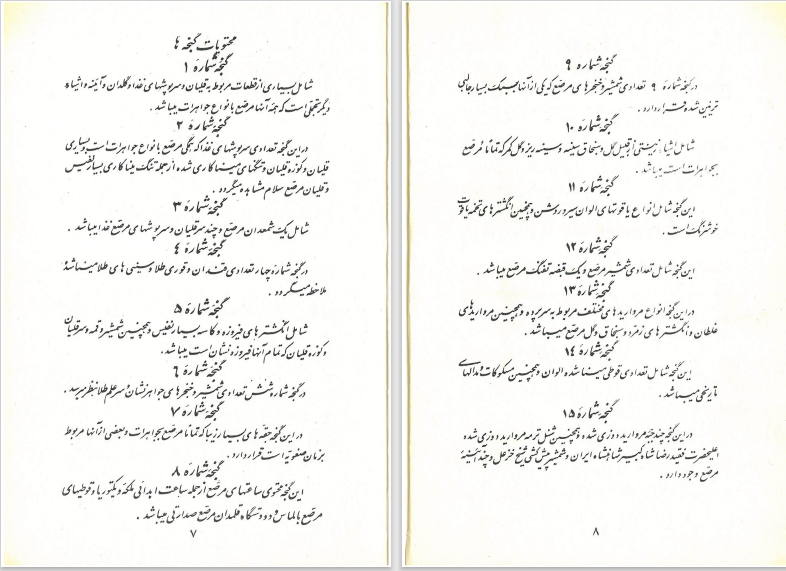 محتویات گنجه ها
گنجه شماره ۱
شامل بسیاری از قطعات مربوط به قلیان و سرپوشهای غذا و گلدان و آئینه و اشیاء
دیگر تجملی است که همه آنها مرصع با نواع جواهرات میباشد .
گنجه شماره ۲
در این گنجه تعدادی سرپوشهای غذا که همگی مرصع با نواع جواهرات است و بسیاری
قلیان و کوزه قلیان و تنگهای مینا کاری شده از جمله تنگ مینا کاری بسیار نفیس
و قلیان مرصع سلام مشاهده میگردد .
گنجه شماره ۳
شامل یک شمعدان مرصع و چند سر قلیان و سرپوشهای مرصع غذا میباشد .
گنجه شماره ٤
در گنجه شماره چهار تعدادی قندان و قوری طلا و سینی های طلا میناشده
ملاحظه میگردد .
گنجه شماره ۵
شامل انگشترهای فیروزه و کاسه بسیار نفیس و همچنین شمشیر و قمه و سر قلیان
و کوزه قلیان که تمام آنها فیروزه نشان است میباشد .
گنجه شماره ٦
در گنجه شماره شش تعدادی شمشیر و خنجرهای جواهر نشان و سر علم طلا بنظر میرسد .
گنجه شماره ۷
در این گنجه حقه های بسیار زیبا که تماماً مرصع بجواهرات و بعضی از آنها مربوط
بزمان صفویه است قرار دارد .
گنجه شماره ۸
این گنجه محتوی ساعتهای مرصع از جمله ساعت اهدائی ملکه ویکتوریا و قوطیهای
مرصع با لماس و دو دستگاه قلمدان مرصع صدارتی میباشد .
۷
گنجه شماره ۹
در گنجه شماره ۹ تعدادی شمشیر و خنجرهای مرصع که یکی از آنها بسبک بسیار جالبی
تزئین شده قرار دارد .
گنجه شماره ۱۰
شامل اشیاء زینتی از قبیل گل و سنجاق سینه و سینه ریز و گل کمر که تماماً مرصع
بجواهرات است میباشد .
گنجه شماره ۱۱
این گنجه شامل انواع یاقوتهای الوان سیر و روشن و همچنین انگشترهای تخمه یاقوت
خوشرنگ است .
گنجه شماره ۱۲
این گنجه شامل تعدادی شمشیر مرصع و یک قبضه تفنگ مرصع میباشد .
گنجه شماره ۱۳
در این گنجه انواع مرواریدهای مختلف مربوط به سرپرده و همچنین مرواریدهای
غلطان و انگشترهای زمرد و سنجاق و گل مرصع میباشد .
گنجه شماره ۱٤
این گنجه شامل تعدادی قوطی مینا شده الوان و همچنین مسکوکات و مدالهای
تاریخی میباشد .
گنجه شماره ۱۵
در این گنجه چند جبه مروارید دوزی شده و همچنین شنل ترمه مروارید دوزی شده
اعلیحضرت فقید رضا شاه کبیر شاهنشاه ایران و شمشیر پیشکشی شیخ خزعل و چند آئینه
مرصع وجود دارد .
۸